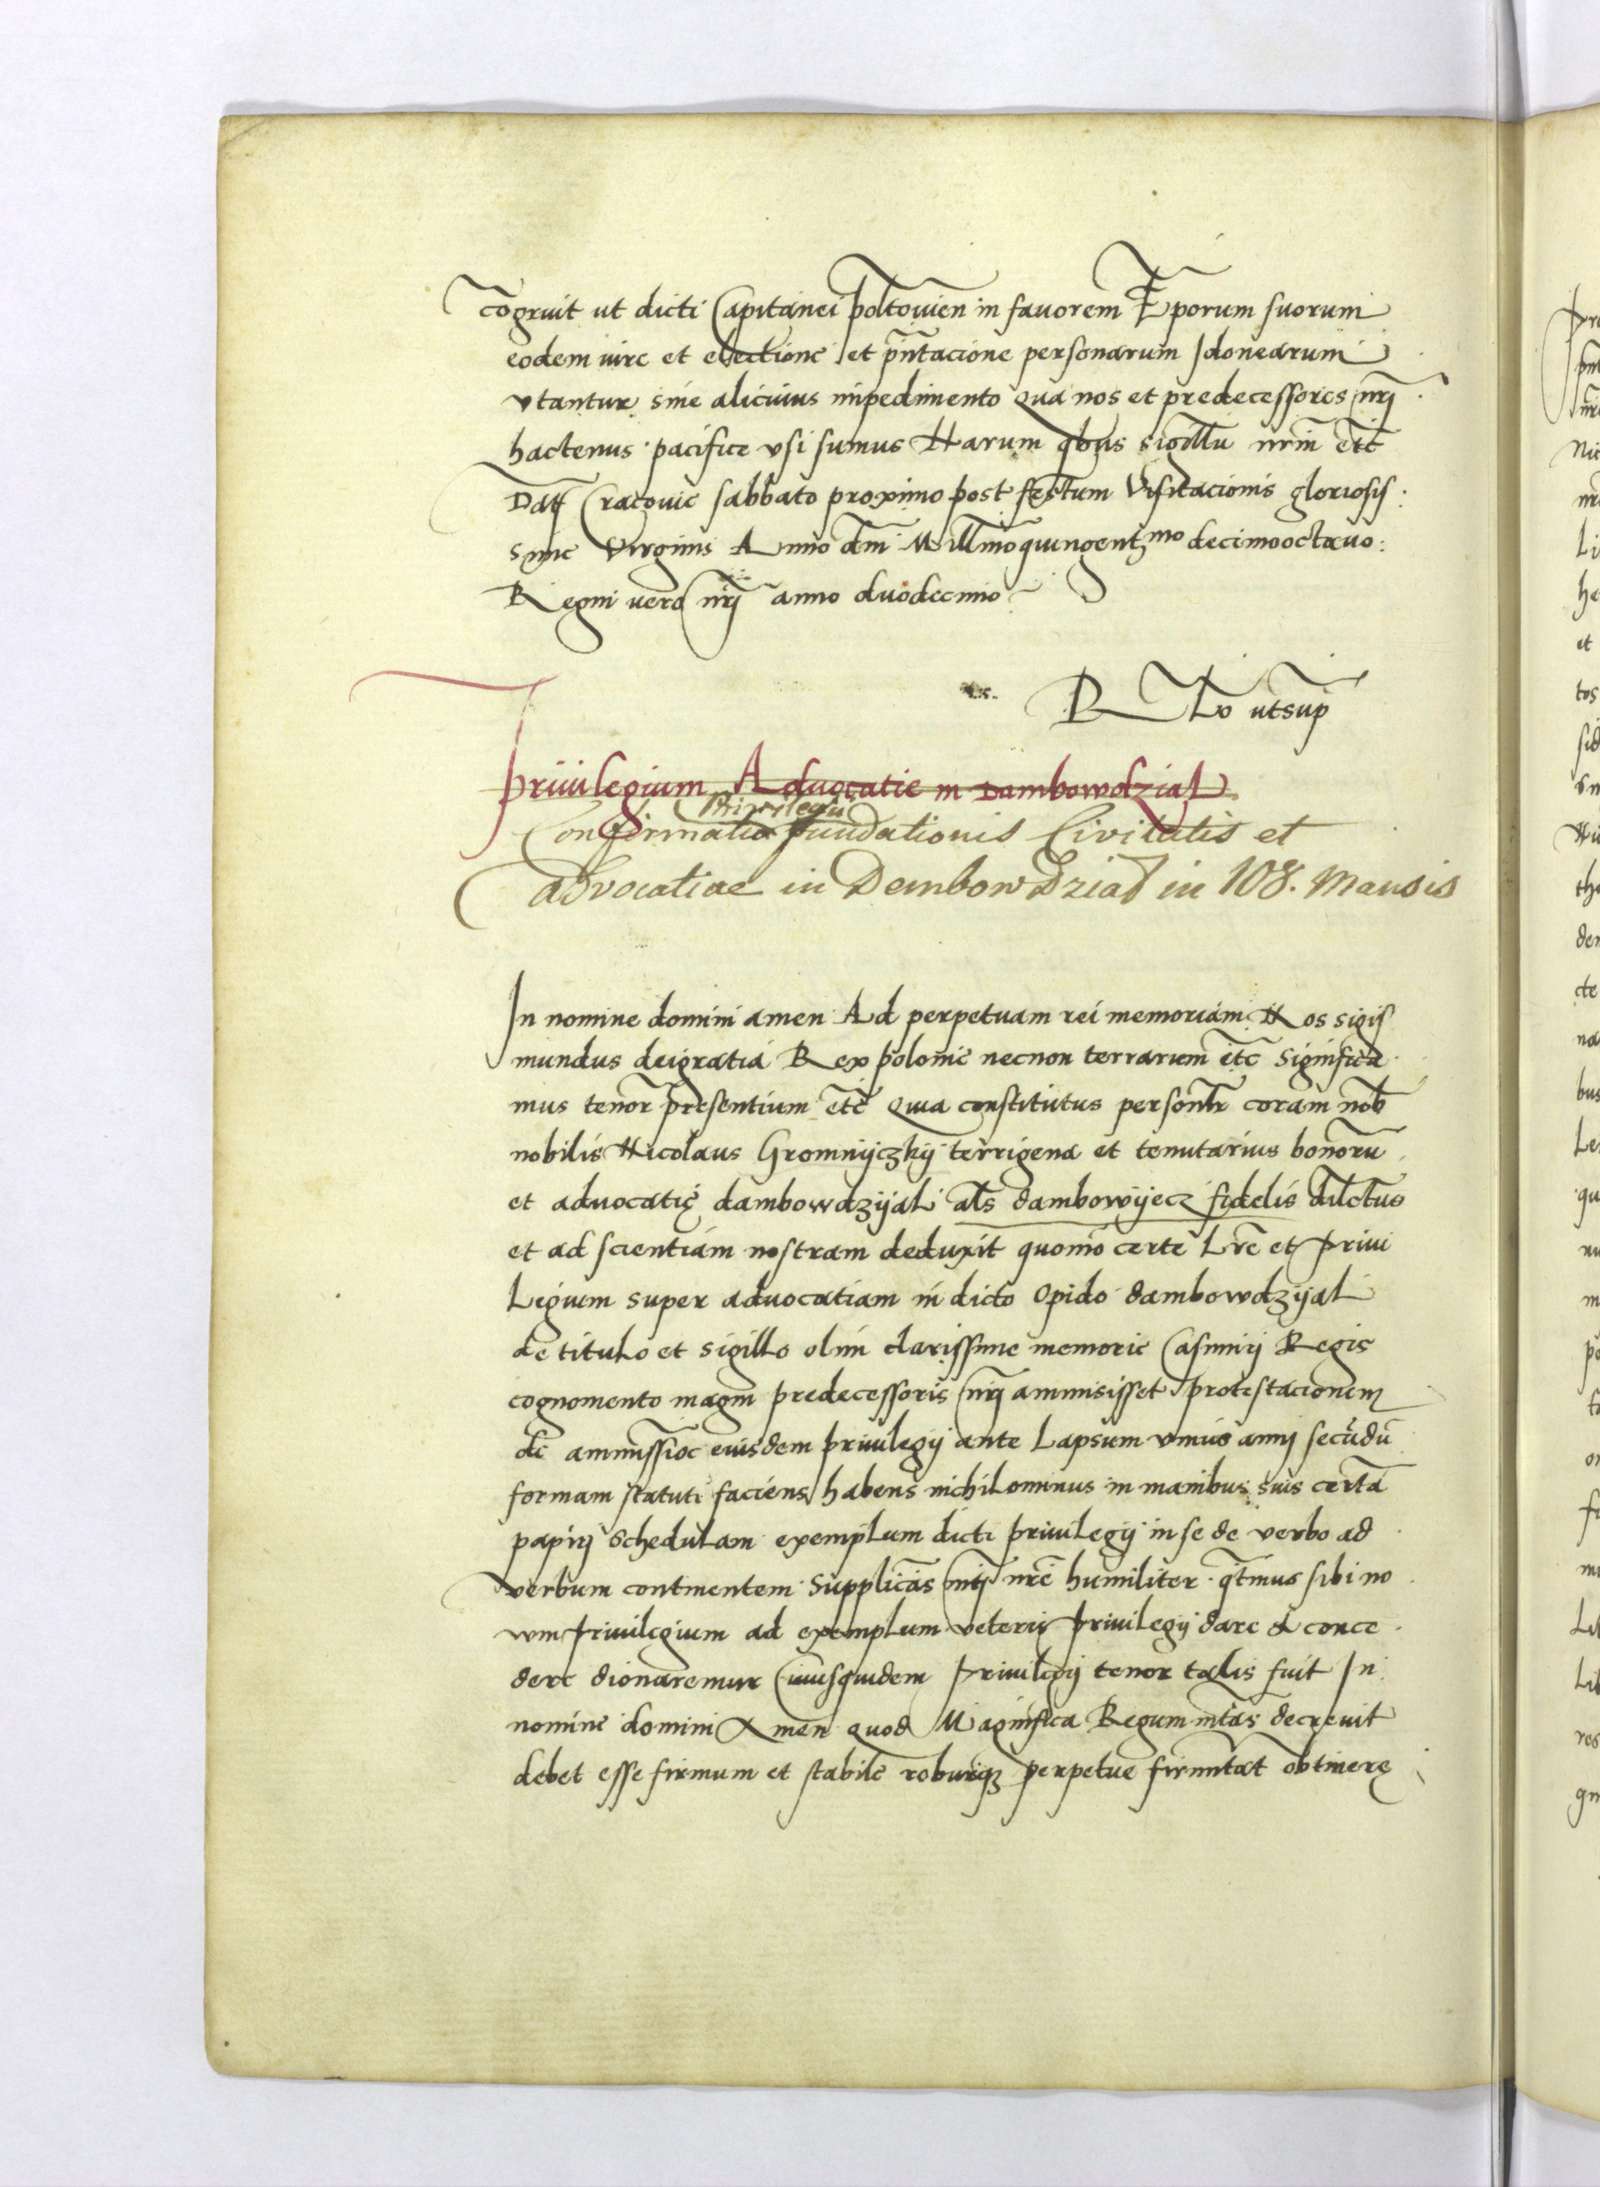 cōgruit ut dicti Capitanei poltouien in fauorem Eporum suorum
eodem iure et electione et pn̄tacione personarum Idonearum
vtantur sine alicuius impedimento qua nos et predecessores nr̄j
hactenus pacifice vsi sumus Harum qbus sigillū nrm̄ etc̄
Dat̄ Cracouie sabbato proximo post festum Visitacionis gloriosis:
sime Virginis Anno dm̄ Millmoquingent mo decimooctauo:
Regni vero nr̄j anno duodecimo
R Lō utsup
Priuilegium Aduocatie in Dambowdzial
Privilegii
Confirmatio fundationis Civitatis et
advocatiae in Dembowdzial in 108. Mansis
In nomine domini amen Ad perpetuam rei memoriam Nos sigis
mundus deigratia Rex polonie necnon terrarum etc̄ Significa
mus tenor presentium etc̄ Quia constitutus personlr̄ coram nob̄
nobilis Nicolaus Gromnijczkij terrigena et tenutarius bonorū
et aduocatię dambowdzijal als̄ dambowijecz fidelis dilctus
et ad scientiam nostram deduxit quomō certe Lr̄e et priui
Legium super aduocatiam in dicto Opido dambowdzijal
de titulo et sigillo olim clarissime memorie Casimirj Regis
cognomento magni predecessoris nr̄j ammisisset protestacionem
de ammissioē eiusdem priuilegij ante Lapsum vnius annj secūdū
formam statuti faciens habens nichilominus in manibus suis certā
papirj Schedulam exemplum dicti priuilegij in se de verbo ad
verbum continentem Supplicās mtj nrē humiliter qtinus sibi no
wm priuilegium ad exemplum veteris priuilegij dare et conce
dere dignaremur Cuiusquidem priuilegij tenor talis fuit In
nomine domini Amen quod Magnifica Regum mtas decreuit
debet esse firmum et stabile roburqz perpetue firmitat obtinere